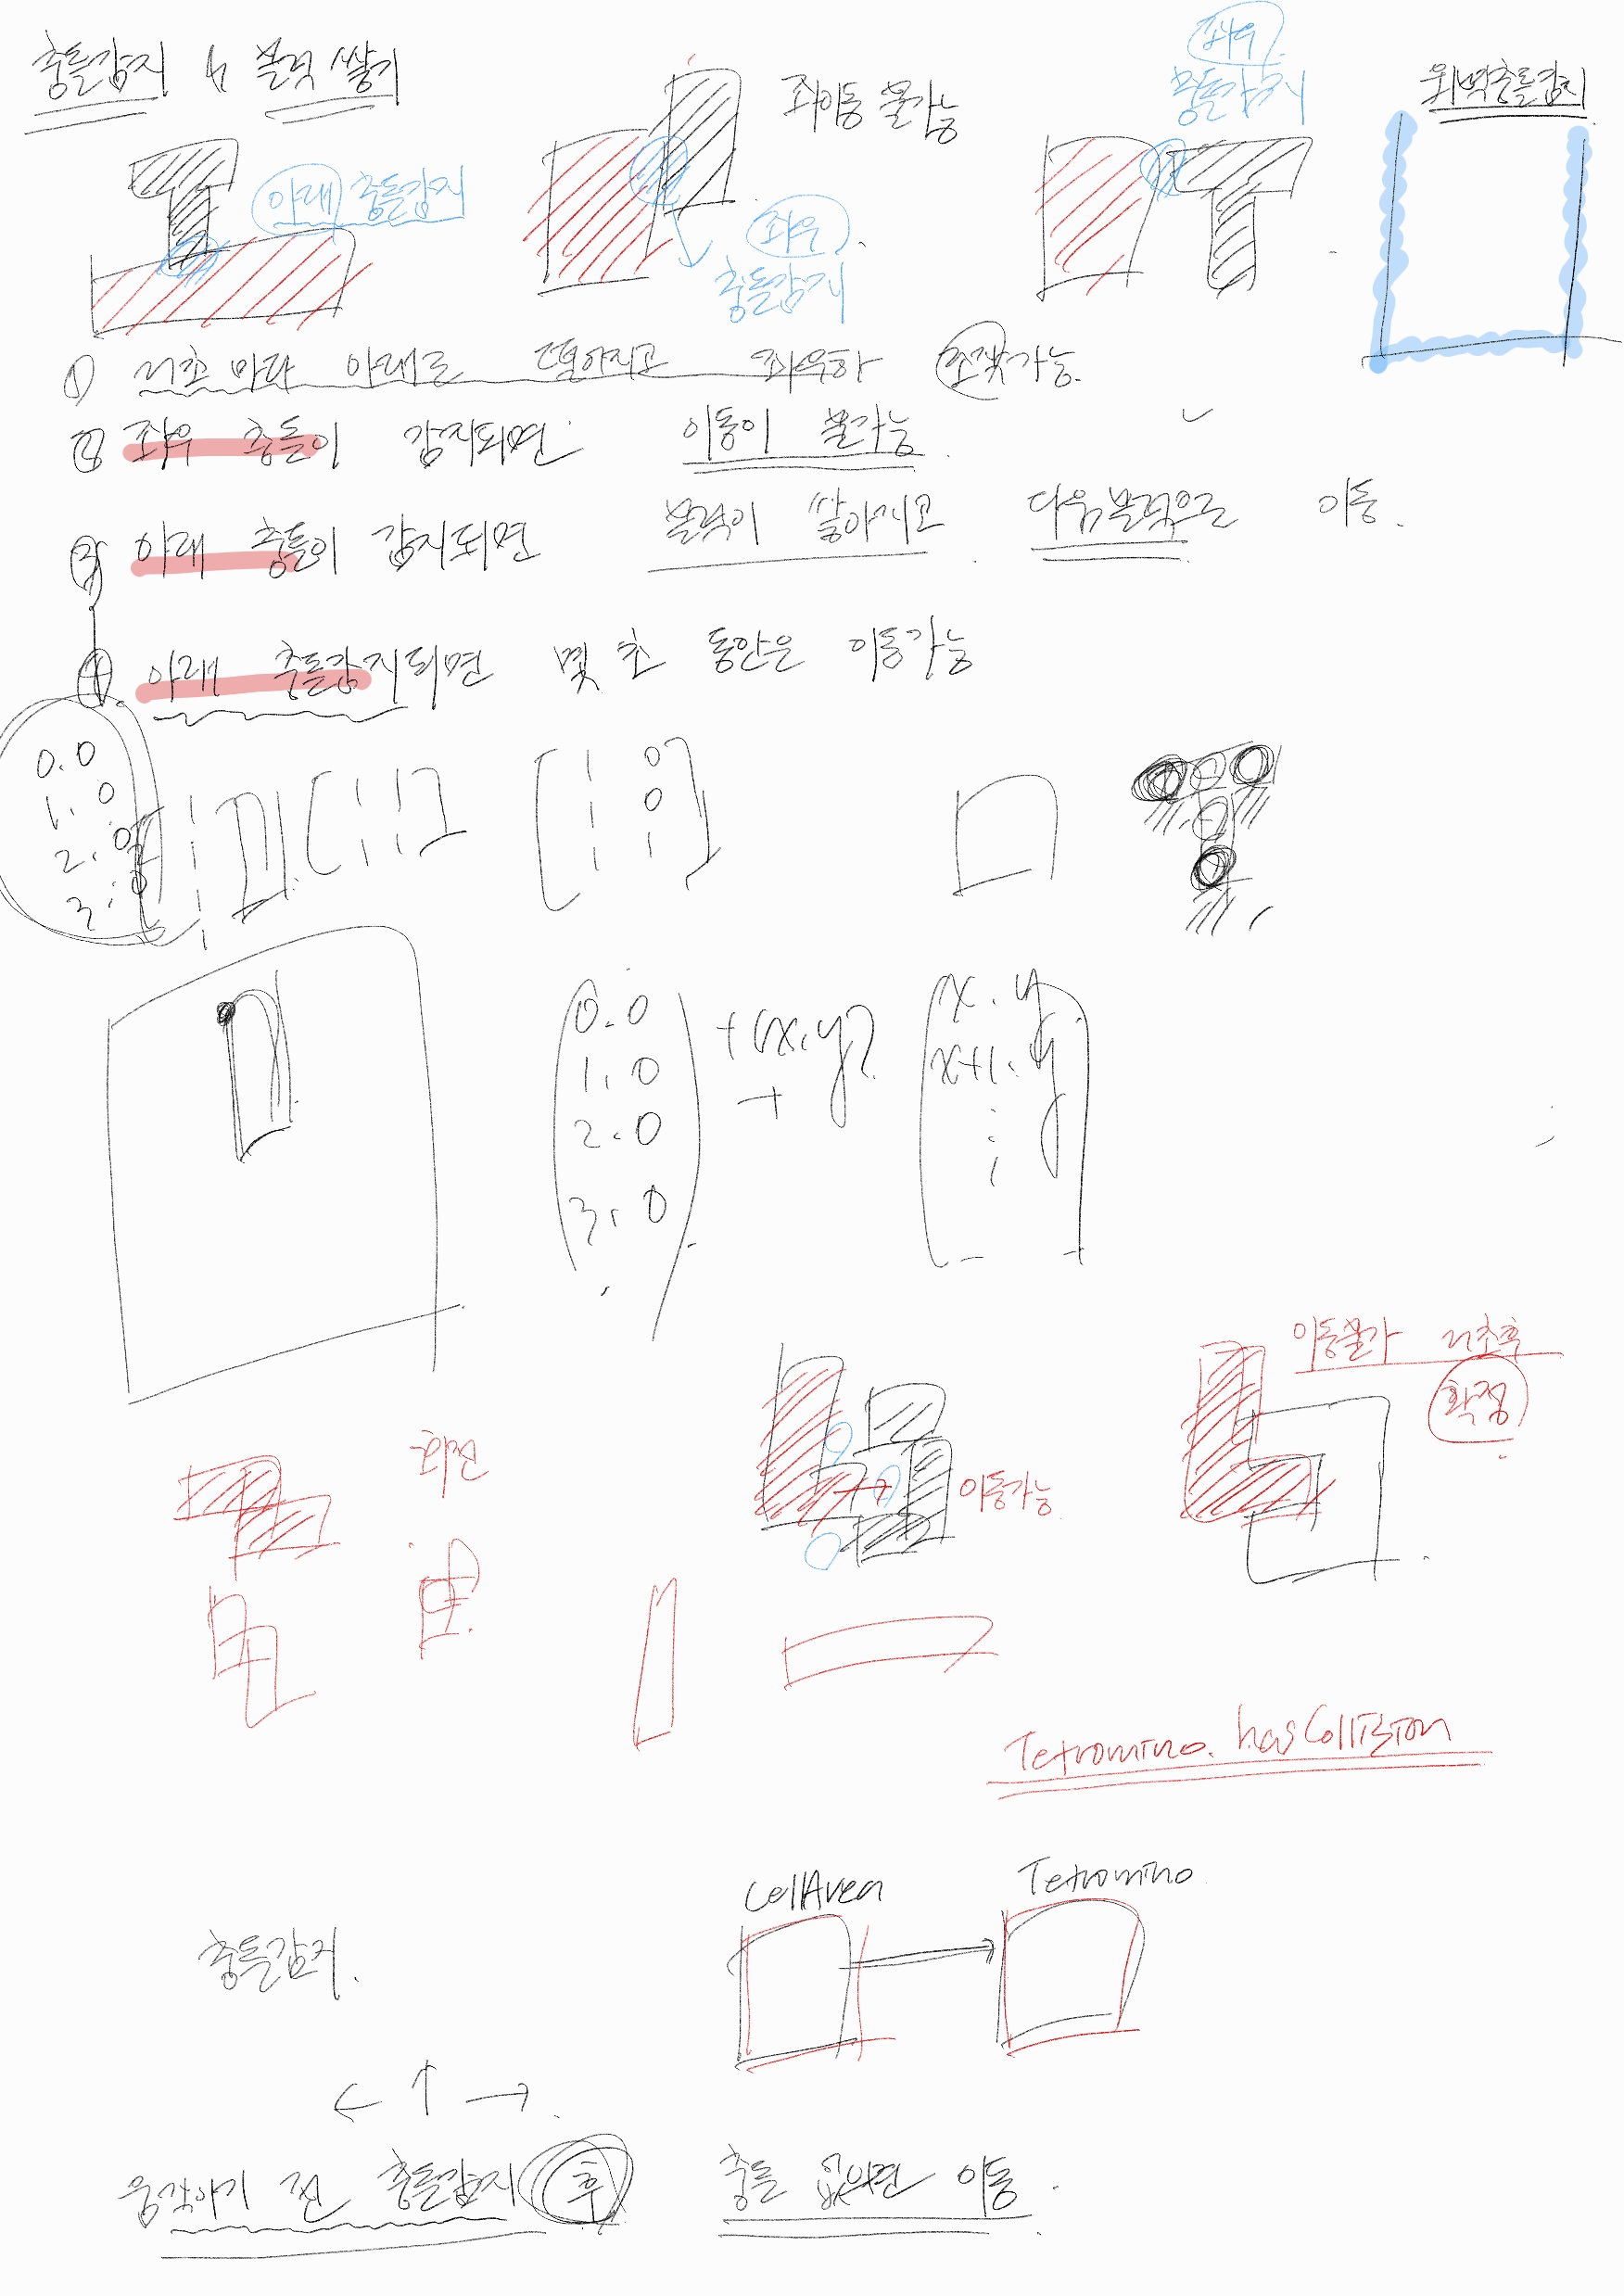 충돌감지 & 블럭 쌓기
좌이동 불가능
좌우
충돌감지
외벽충돌감지
아래 충돌감지
좌우
충돌감지
① 마다 아래로 떨어지고 좌우하 조작가능.
② 좌우 충돌이 감지되면 이동이 불가능.
③ 아래 충돌이 감지되면 블럭이 쌓아지고 다음블럭으로 이동.
④ 아래 충돌감지되면 몇 초 동안은 이동가능
0.0
1.0
2.0
3.0
0
0
0.0
1.0
2.0
3.0
+(x.y)
x.y
x+1.y
이동불가
확정
회전
이동가능
Tetromino.hasCollision
CellArea
Tetromino
충돌감지.
← ↑ →
움직이기 전 충돌감지 후 충돌 없으면 이동.